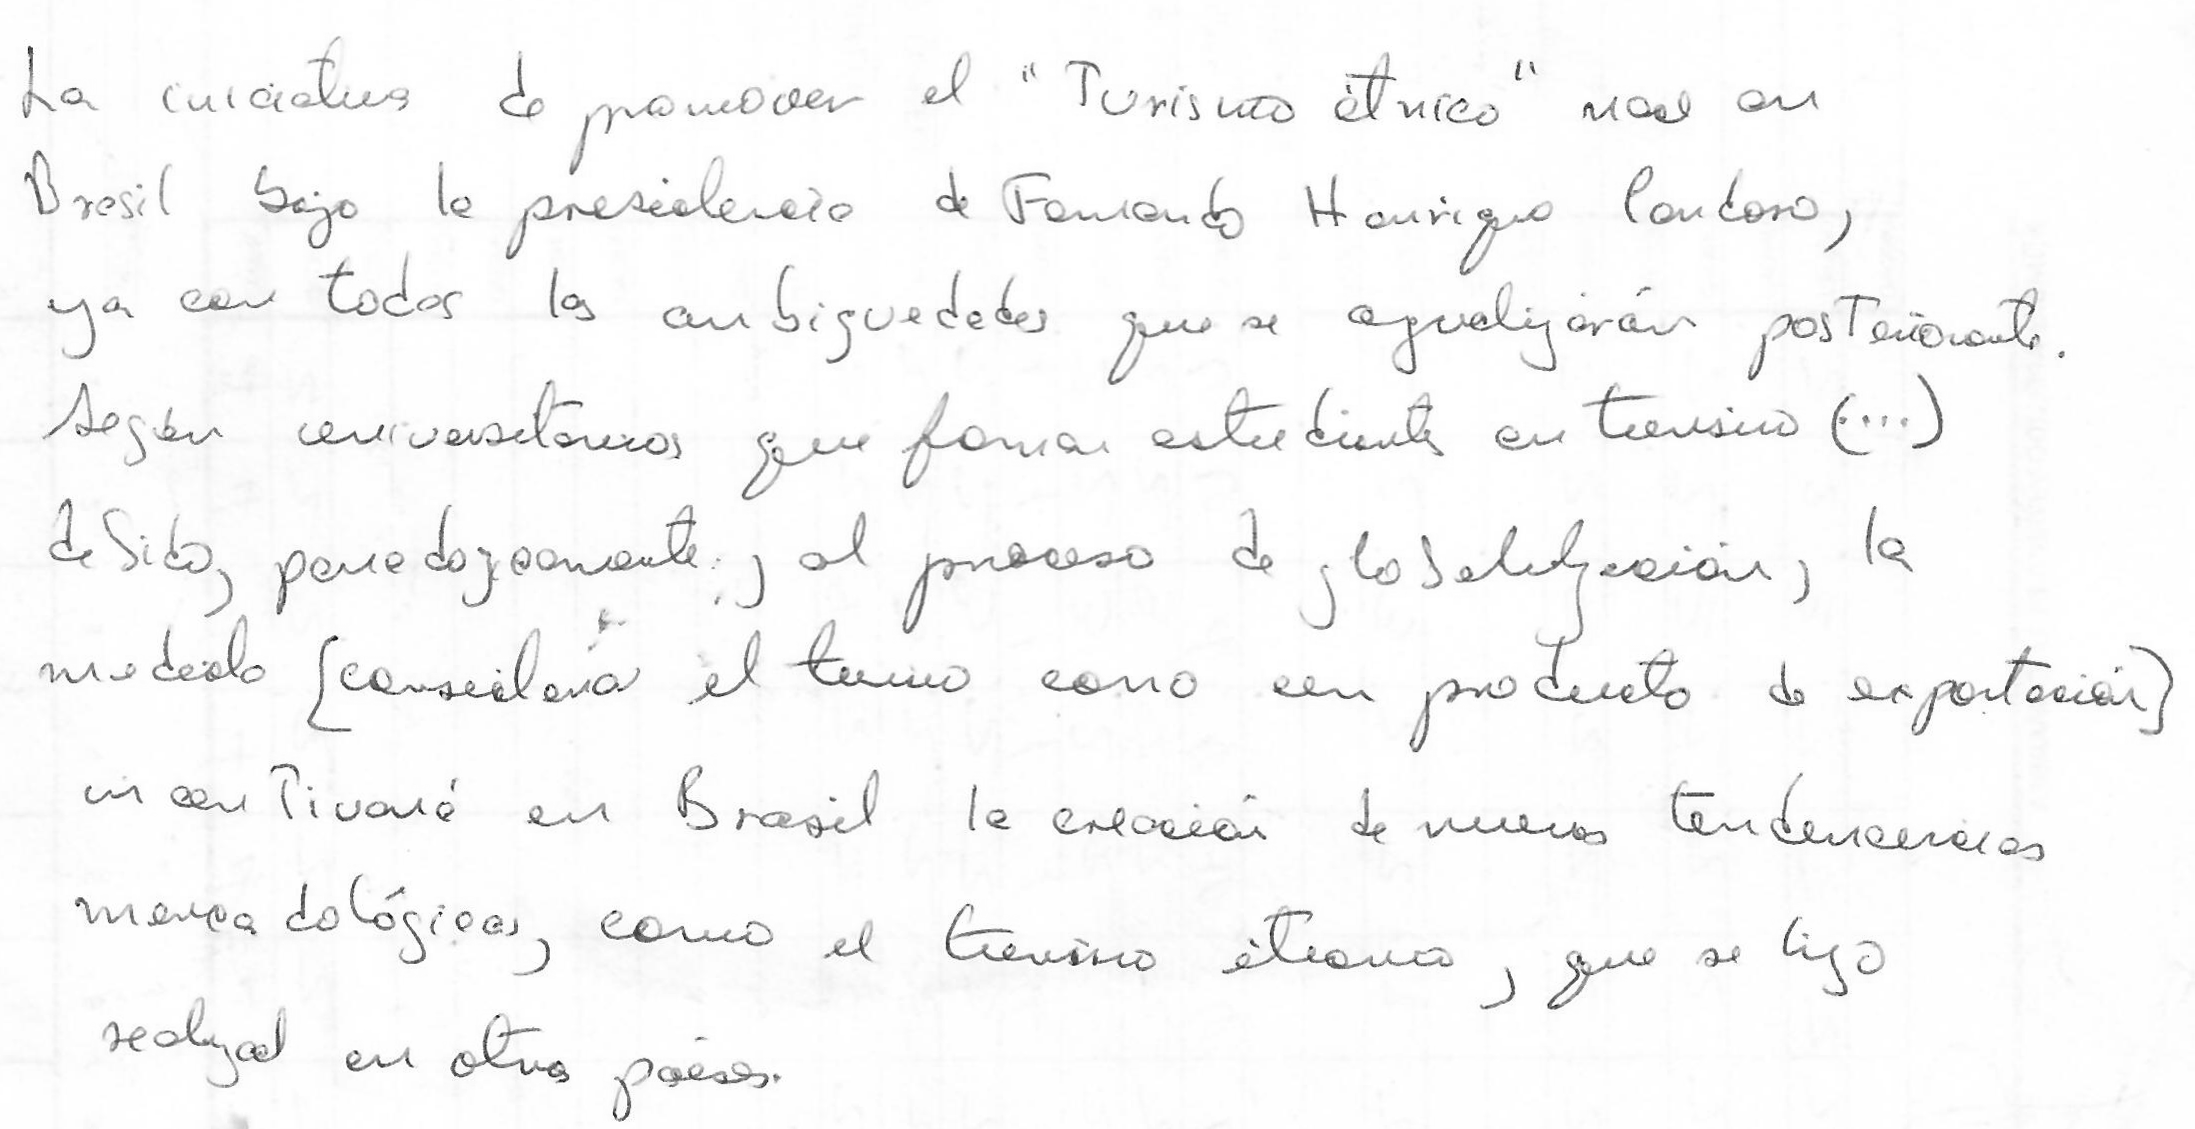 La iniciativa de promover el "Turismo étnico" nace en
Brasil bajo la presidencia de Fernando Henrique Cardoso,
ya con todas las ambiguedades que se agudizarán posteriormente.
Según universitarios que forman estudiantes en turismo (...)
debido, paradojicamente, al proceso de globalización, la
mirada [considera el turismo como un producto de exportación]
incentivará en Brasil la creación de nuevas tendencias
mercadológicas, como el turismo étnico, que se hizo
realidad en otros países.